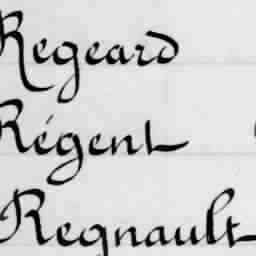 Regeard
Régent
Regnault